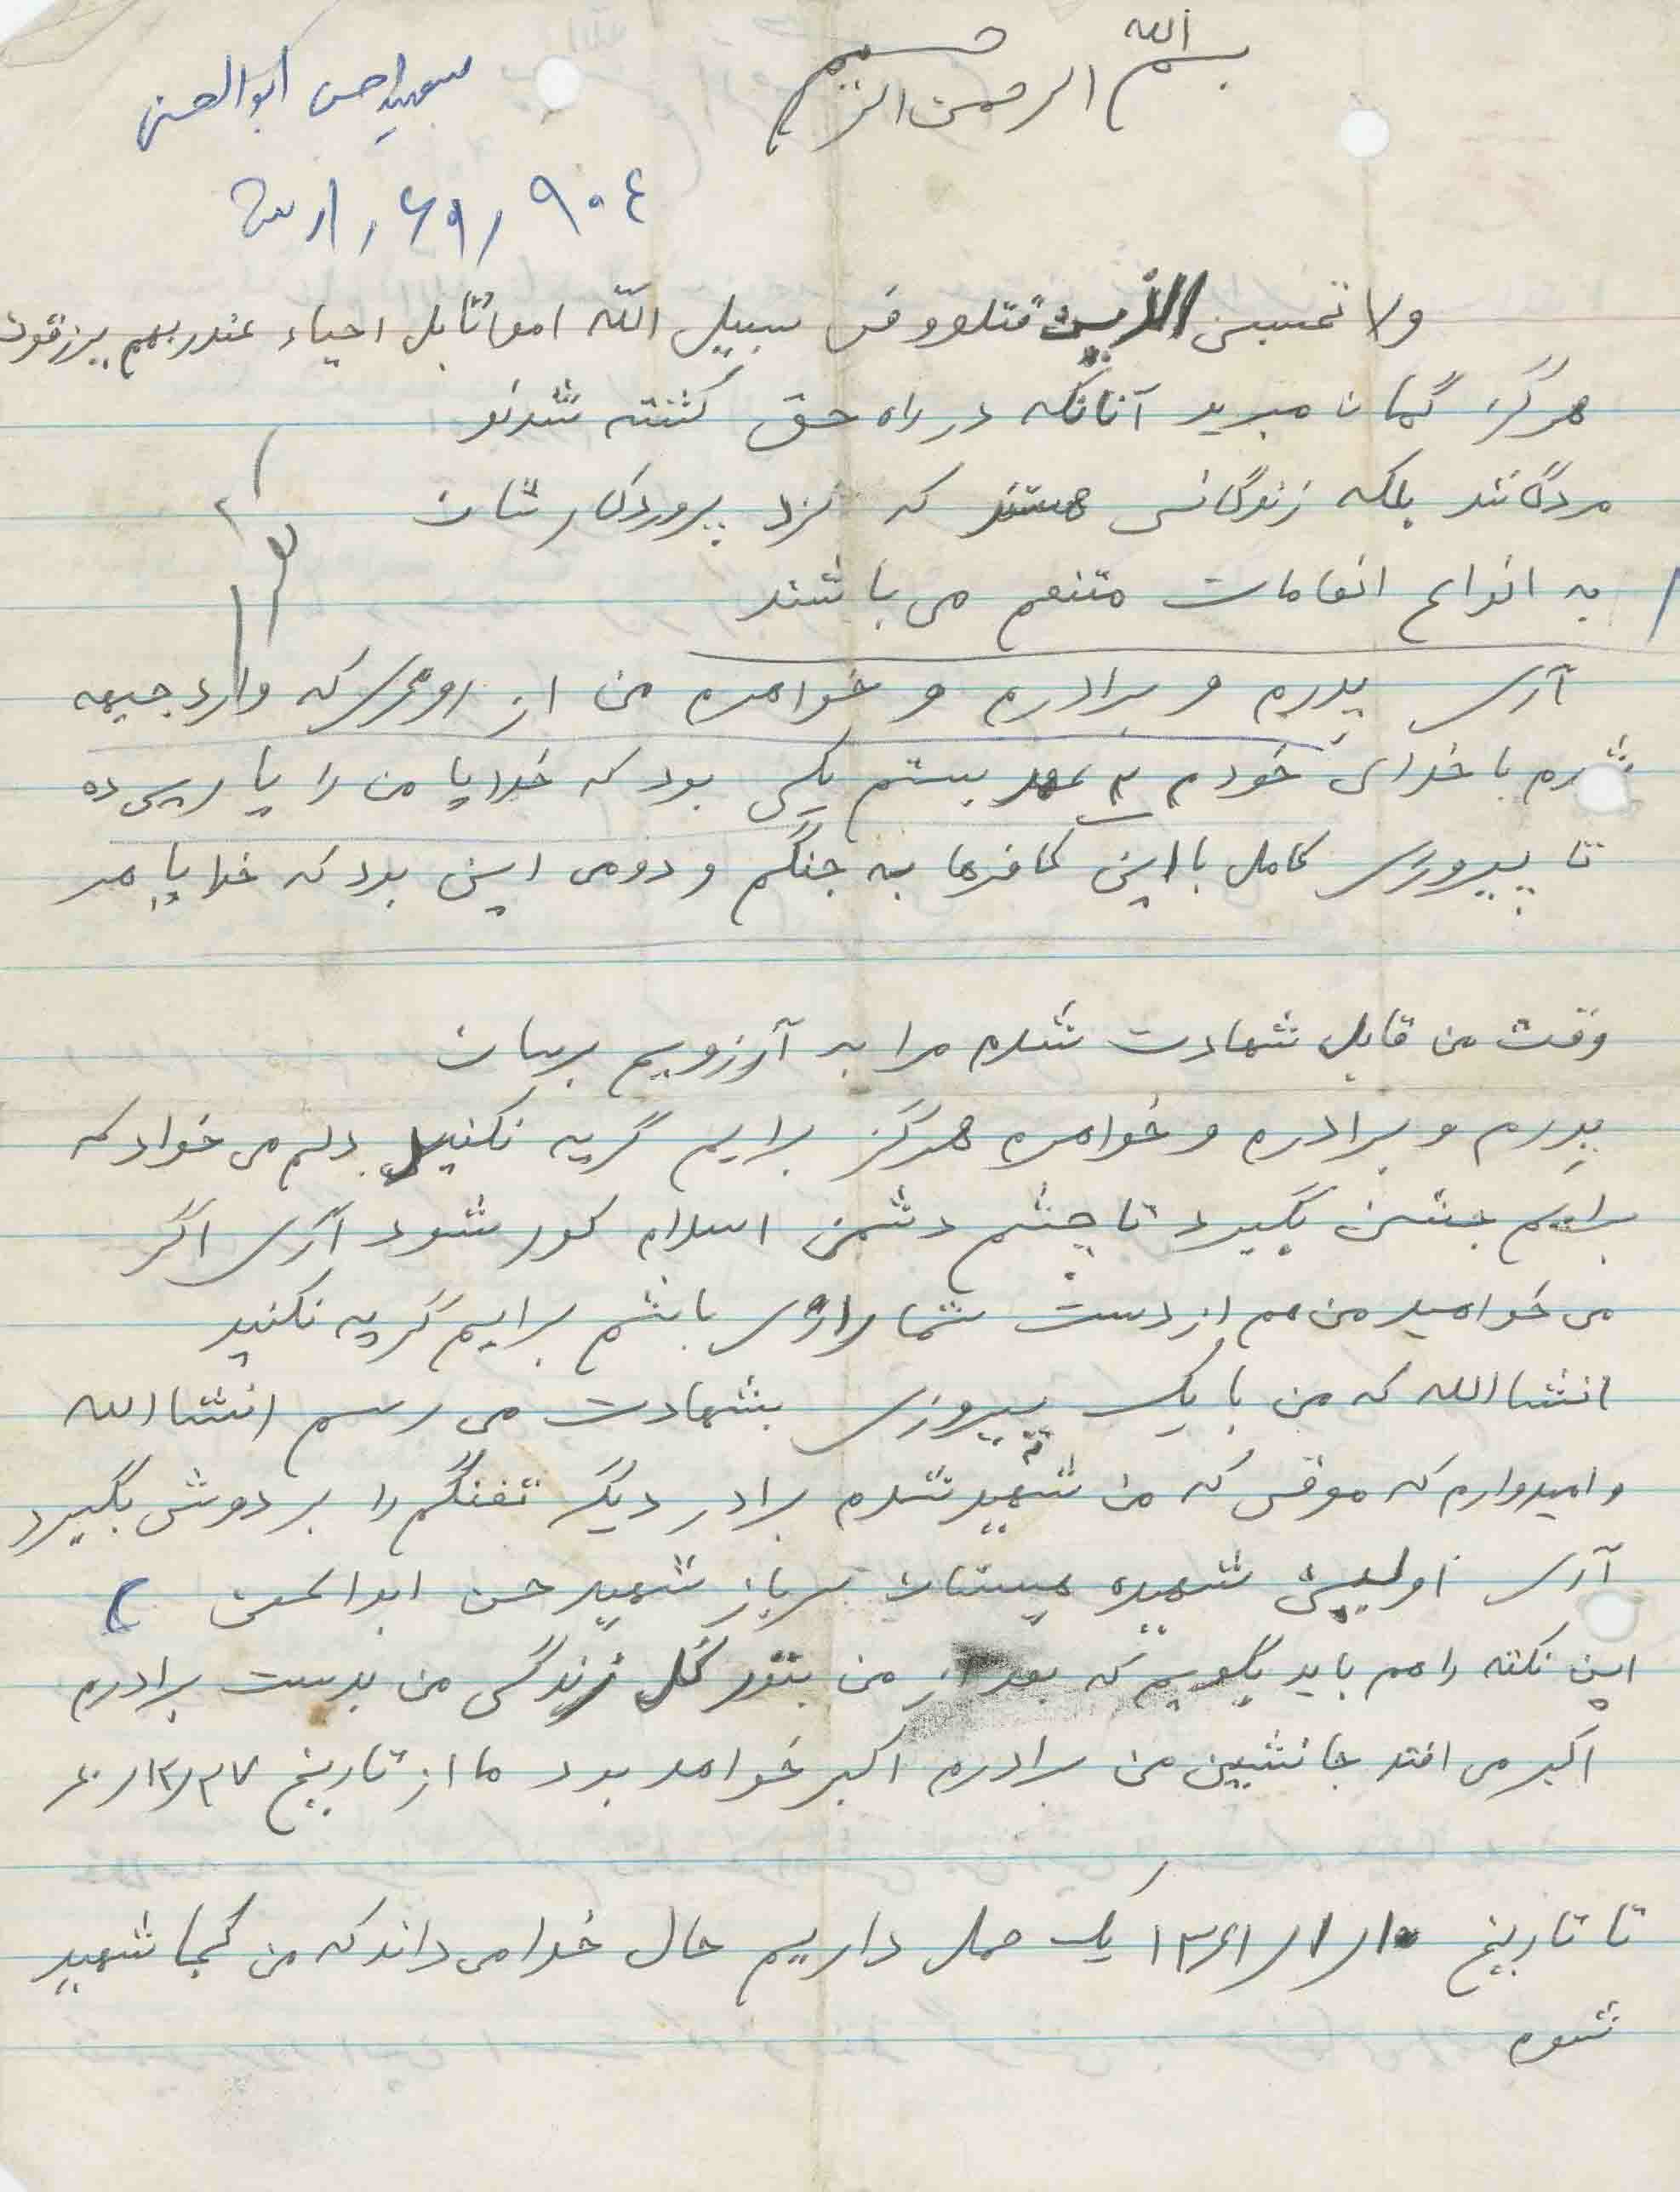 بسم الله الرحمن الرحیم
شهید حسن ابوالحسنی
ولا تحسبن الذین قتلوو فی سبیل الله امواتا بل احیاء عندربهم یرزقون
هرگز گمان مبرید آنانکه در راه حق کشته شدند
مردگانند بلکه زندگانی هستند که نزد پروردگارشان
به انواع انعامات متنعم می باشند
آری پدرم و برادرم و خواهرم من از روزی که وارد جبهه
شدم با خدای خودم ۲ عهد بستم یکی بود که خدایا من را یاری ده
تا پیروزی کامل با این کافرها به جنگم و دومی این بود که خدایا هر
وقت من قابل شهادت شدم مرا به آرزویم برسان
پدرم و برادرم و خواهرم هرگز برایم گریه نکنید دلم می خواد که
برایم جشن بگیرد تا چشم دشمن اسلام کور شود آری اگر
می خواهید من هم از دست شما راضی باشم برایم گریه نکنید
انشاالله که من با یک پیروزی بشهادت می رسم انشاالله
و امیدوارم که موقی که من شهید شدم برادر دیگر تفنگم را بر دوش بگیرد
آری اولین شهیده سرباز شهید حسن ابوالحسنی
این نکته را هم باید بگویم که بعد از من کل زندگی من بدست برادرم
اکبر می افتد جانشین من برادرم اکبر خواهد بود ما از تاریخ ۶۰/۱۲/۲۷
تا تاریخ ۱۳۶۱/۱/۱۰ یک حمل داریم حال خدا می داند که من کجا شهید
شوم